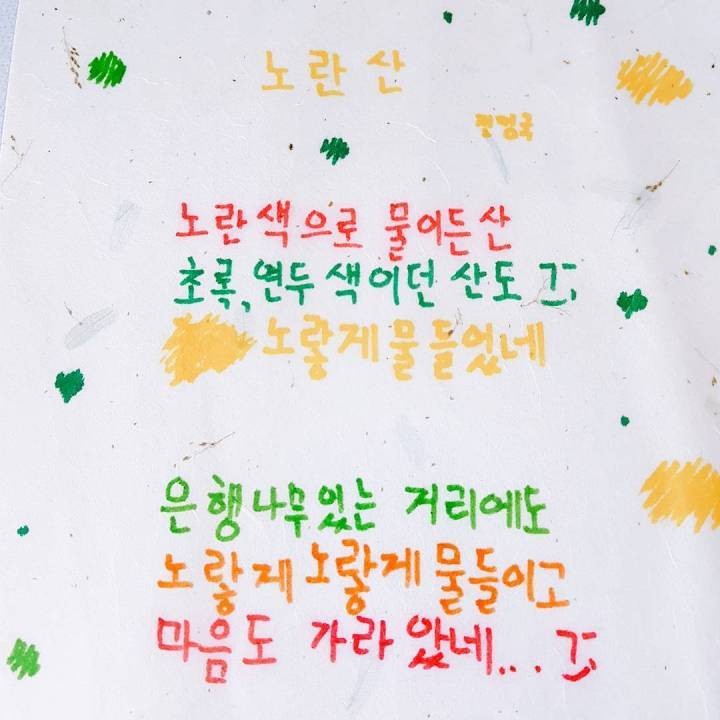 노란 산
노란색으로 물이든산
초록,연두 색이던 산도
노랗게 물들었네
은행나무있는 거리에도
노랗게 노랗게 물들이고
마음도 가라 았네...